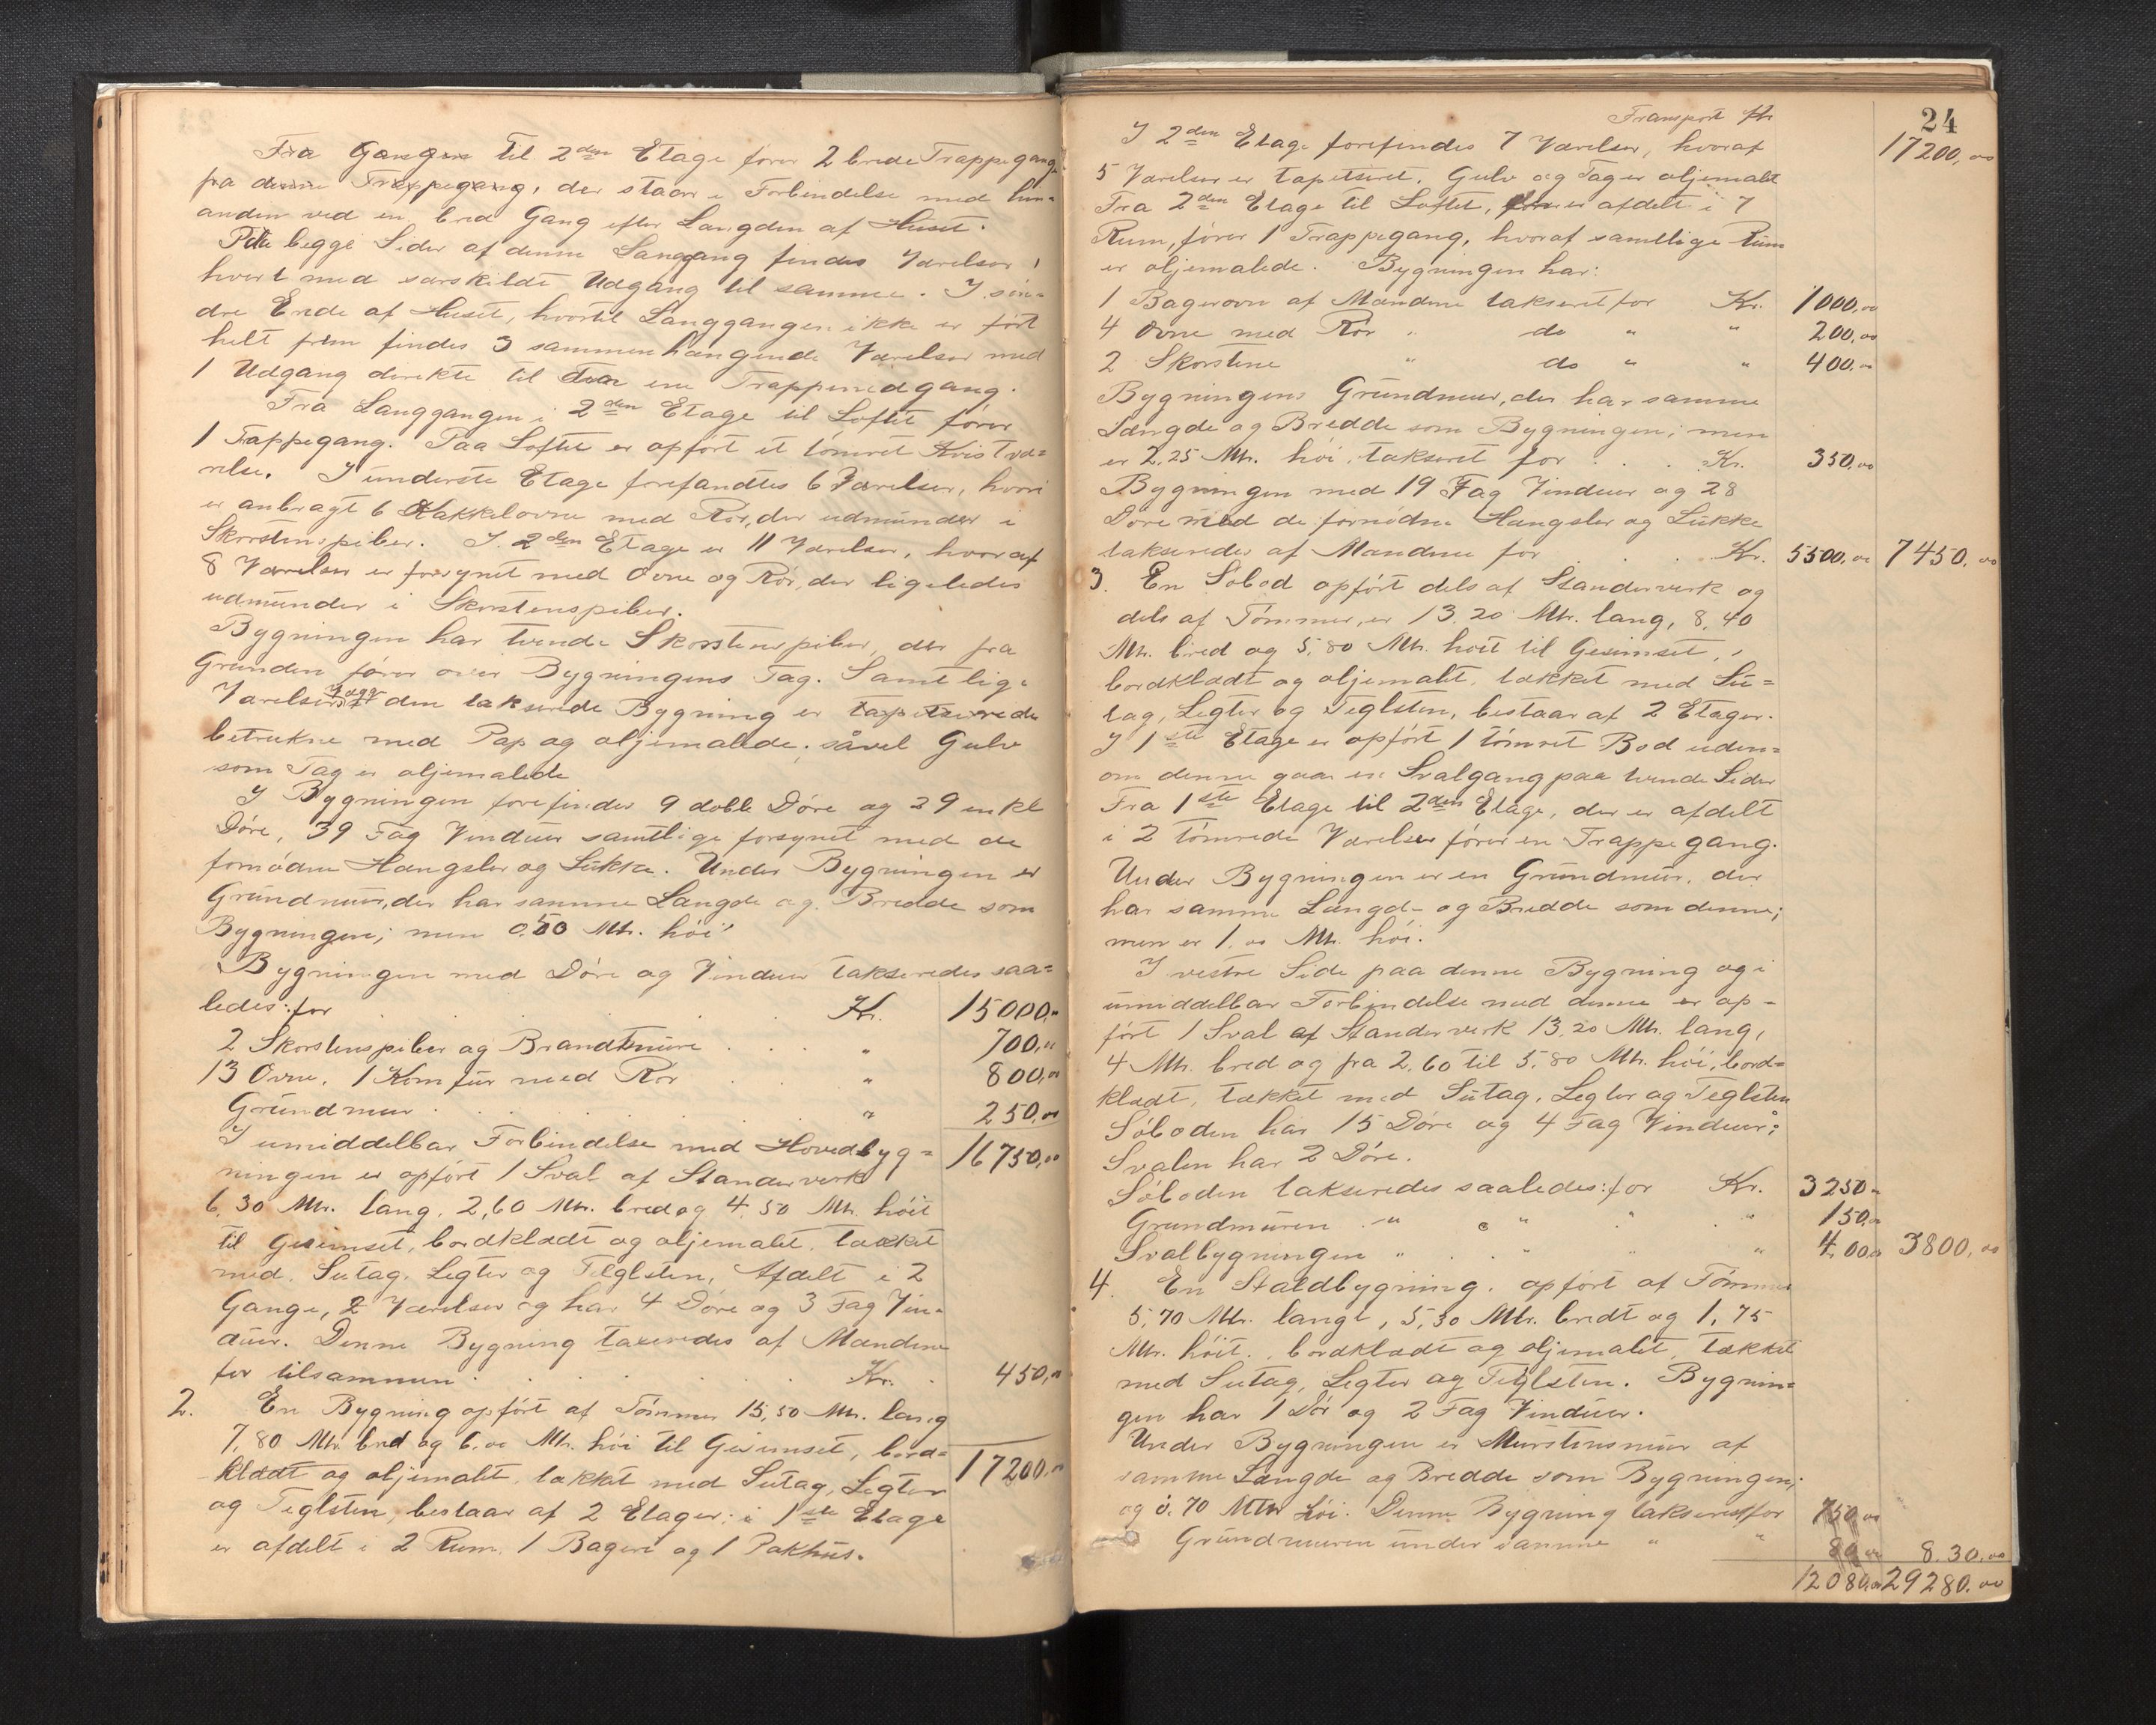 Fra Gangen til 2den Etage fører 2 brede Trappegange
fra denne Trappegang, der staar i Forbindelse med hin=
anden ved en bred Gang efter Længden af Huset.
Paa begge Sider af denne Langgang findes Værelser,
hvert med særskildt Udgang til samme. I søn=
dre Ende af Huset, hvortil Langgangen ikke er ført
helt frem findes 3 sammenhængende Værelser med
1 Udgang direkte til den ene Trappenidgang.
Fra Langgangen i 2den Etage til Loftet fører
1 Trappegang. Paa Loftet er opført et tømret Kvistvæ=
relse. I underste Etage forefandtes 6 Værelser, hvori
er anbragt 6 Kakkelovne med Rør, der udmunder i
Skorstenspiber. I 2den Etage er 11 Værelser, hvoraf
8 Værelser er forsynet med Ovne og Rør, der ligeledes
udmunder i Skorstenspiber.
Bygningen har tvende Skorstenspiber, der fra
Grunden fører over Bygningens Tag. Samtlige
Værelser den takserede Bygning er tapetserede
betrukne med Pap og oljemalede; såvel Gulv
som Tag er oljemalede
I Bygningen forefindes 9 doble Døre og 29 enkl
Døre, 39 Fag Vinduer samtlige forsynet med de
fornødne Hængsler og Lukke. Under Bygningen er
Grundmur, der har samme Længde og Bredde som
Bygningen; men 0.50 Mtr. høi
Bygningen med Døre og Vinduer takseredes saa=
ledes: for . . . Kr. 15000,00
2 Skorstenspiber og Brandtmure . . . " 700,00
13 Ovne, 1 Komfur med Rør . . " 800,00
Grundmur . . . . " 250,00
I umiddelbar Forbindelse med Hovedbyg= 16750,00
ningen er opført 1 Sval af Standerverk
6,30 Mtr. lang, 2,60 Mtr. bred og 4,50 Mtr. høit
til Gesimset, bordklædt og oljemalet, tækket
med Sutag, Legter og Teglsten, Afdelt i 2
Gange, 2 Værelser og har 4 Døre og 3 Fag Vin=
duer. Denne Bygning taxeredes af Mændene
for tilsammen . . . . Kr. 450,00
2. En Bygning opført af Tømmer 15,50 Mtr. lang
7,80 Mtr bred og 6,00 Mtr. høi til Gesimset, bord=
klædt og oljemalet, tækket med Sutag, Legter 17200,00
og Teglsten, bestaar af 2 Etager: i 1ste Etage
er afdelt i 2 Rum, 1 Bageri og 1 Pakhus.
24
Transport Kr. 17200,00
I 2den Etage forefindes 7 Værelser, hvoraf
5 Værelser er tapetseret. Gulv og Tag er oljemalet
Fra 2den Etage til Loftet, er afdelt i 7
Rum, fører 1 Trappegang, hvoraf samtlige Rum
er oljemalede. Bygningen har:
1 Bagerovn af Mændene takseret for Kr. 1000,00
4 Ovne med Rør " do " " 200,00
2 Skorstene " do " " 400,00
Bygningens Grundmur, der har samme
Længde og Bredde som Bygningen; men
er 2,25 Mtr. høi, takseret for . . . Kr. 350,00
Bygningen med 19 Fag Vinduer og 28
Døre med de fornødne Hængsler og Lukke
takseredes af Mændene for . . Kr. 5500,00 7450,00
3. En Søbod opført dels af Standerverk og
dels af Tømmer, er 13,20 Mtr. lang, 8,40
Mtr. bred og 5,80 Mtr. høit til Gesimset,
bordklædt og oljemalet, tækket med Su=
tag, Legter og Teglsten, bestaar af 2 Etager.
I 1ste Etage er opført 1 tømret Bod uden=
om denne gaar en Svalgang paa tvende Sider
Fra 1ste Etage til 2den Etage, der er afdelt
i 2 tømrede Værelser fører en Trappegang.
Under Bygningen er en Grundmur, der
har samme Længde og Bredde som denne;
men er 1,00 Mtr. høi.
I vestre Side paa denne Bygning og i
umiddelbar Forbindelse med denne er op=
ført 1 Sval af Standerverk 13,20 Mtr. lang,
4 Mtr. bred og fra 2,60 til 5,80 Mtr. høi, bord=
klædt, tækket med Sutag, Legter og Teglsten
Søboden har 15 Døre og 4 Fag Vinduer;
Svalen har 2 Døre.
Søboden takseredes saaledes: for Kr. 3250,00
Grundmuren " " " " 150,00
Svalbygningen " " " " 400,00 3800,00
4. En Staldbygning, opført af Tømmer
5,70 Mtr. langt, 5,30 Mtr. bredt og 1,75
Mtr. høit, bordklædt og oljemalet, tækket
med Sutag, Legter og Teglsten. Bygnin=
gen har 1 Dør og 2 Fag Vinduer.
Under Bygningen er Murstensmur af
samme Længde og Bredde som Bygningen;
og 0,70 Mtr høi. Denne Bygning takseres for 750,00
Grundmuren under samme " " 80,00 8.30,00
12080,00 29280,00